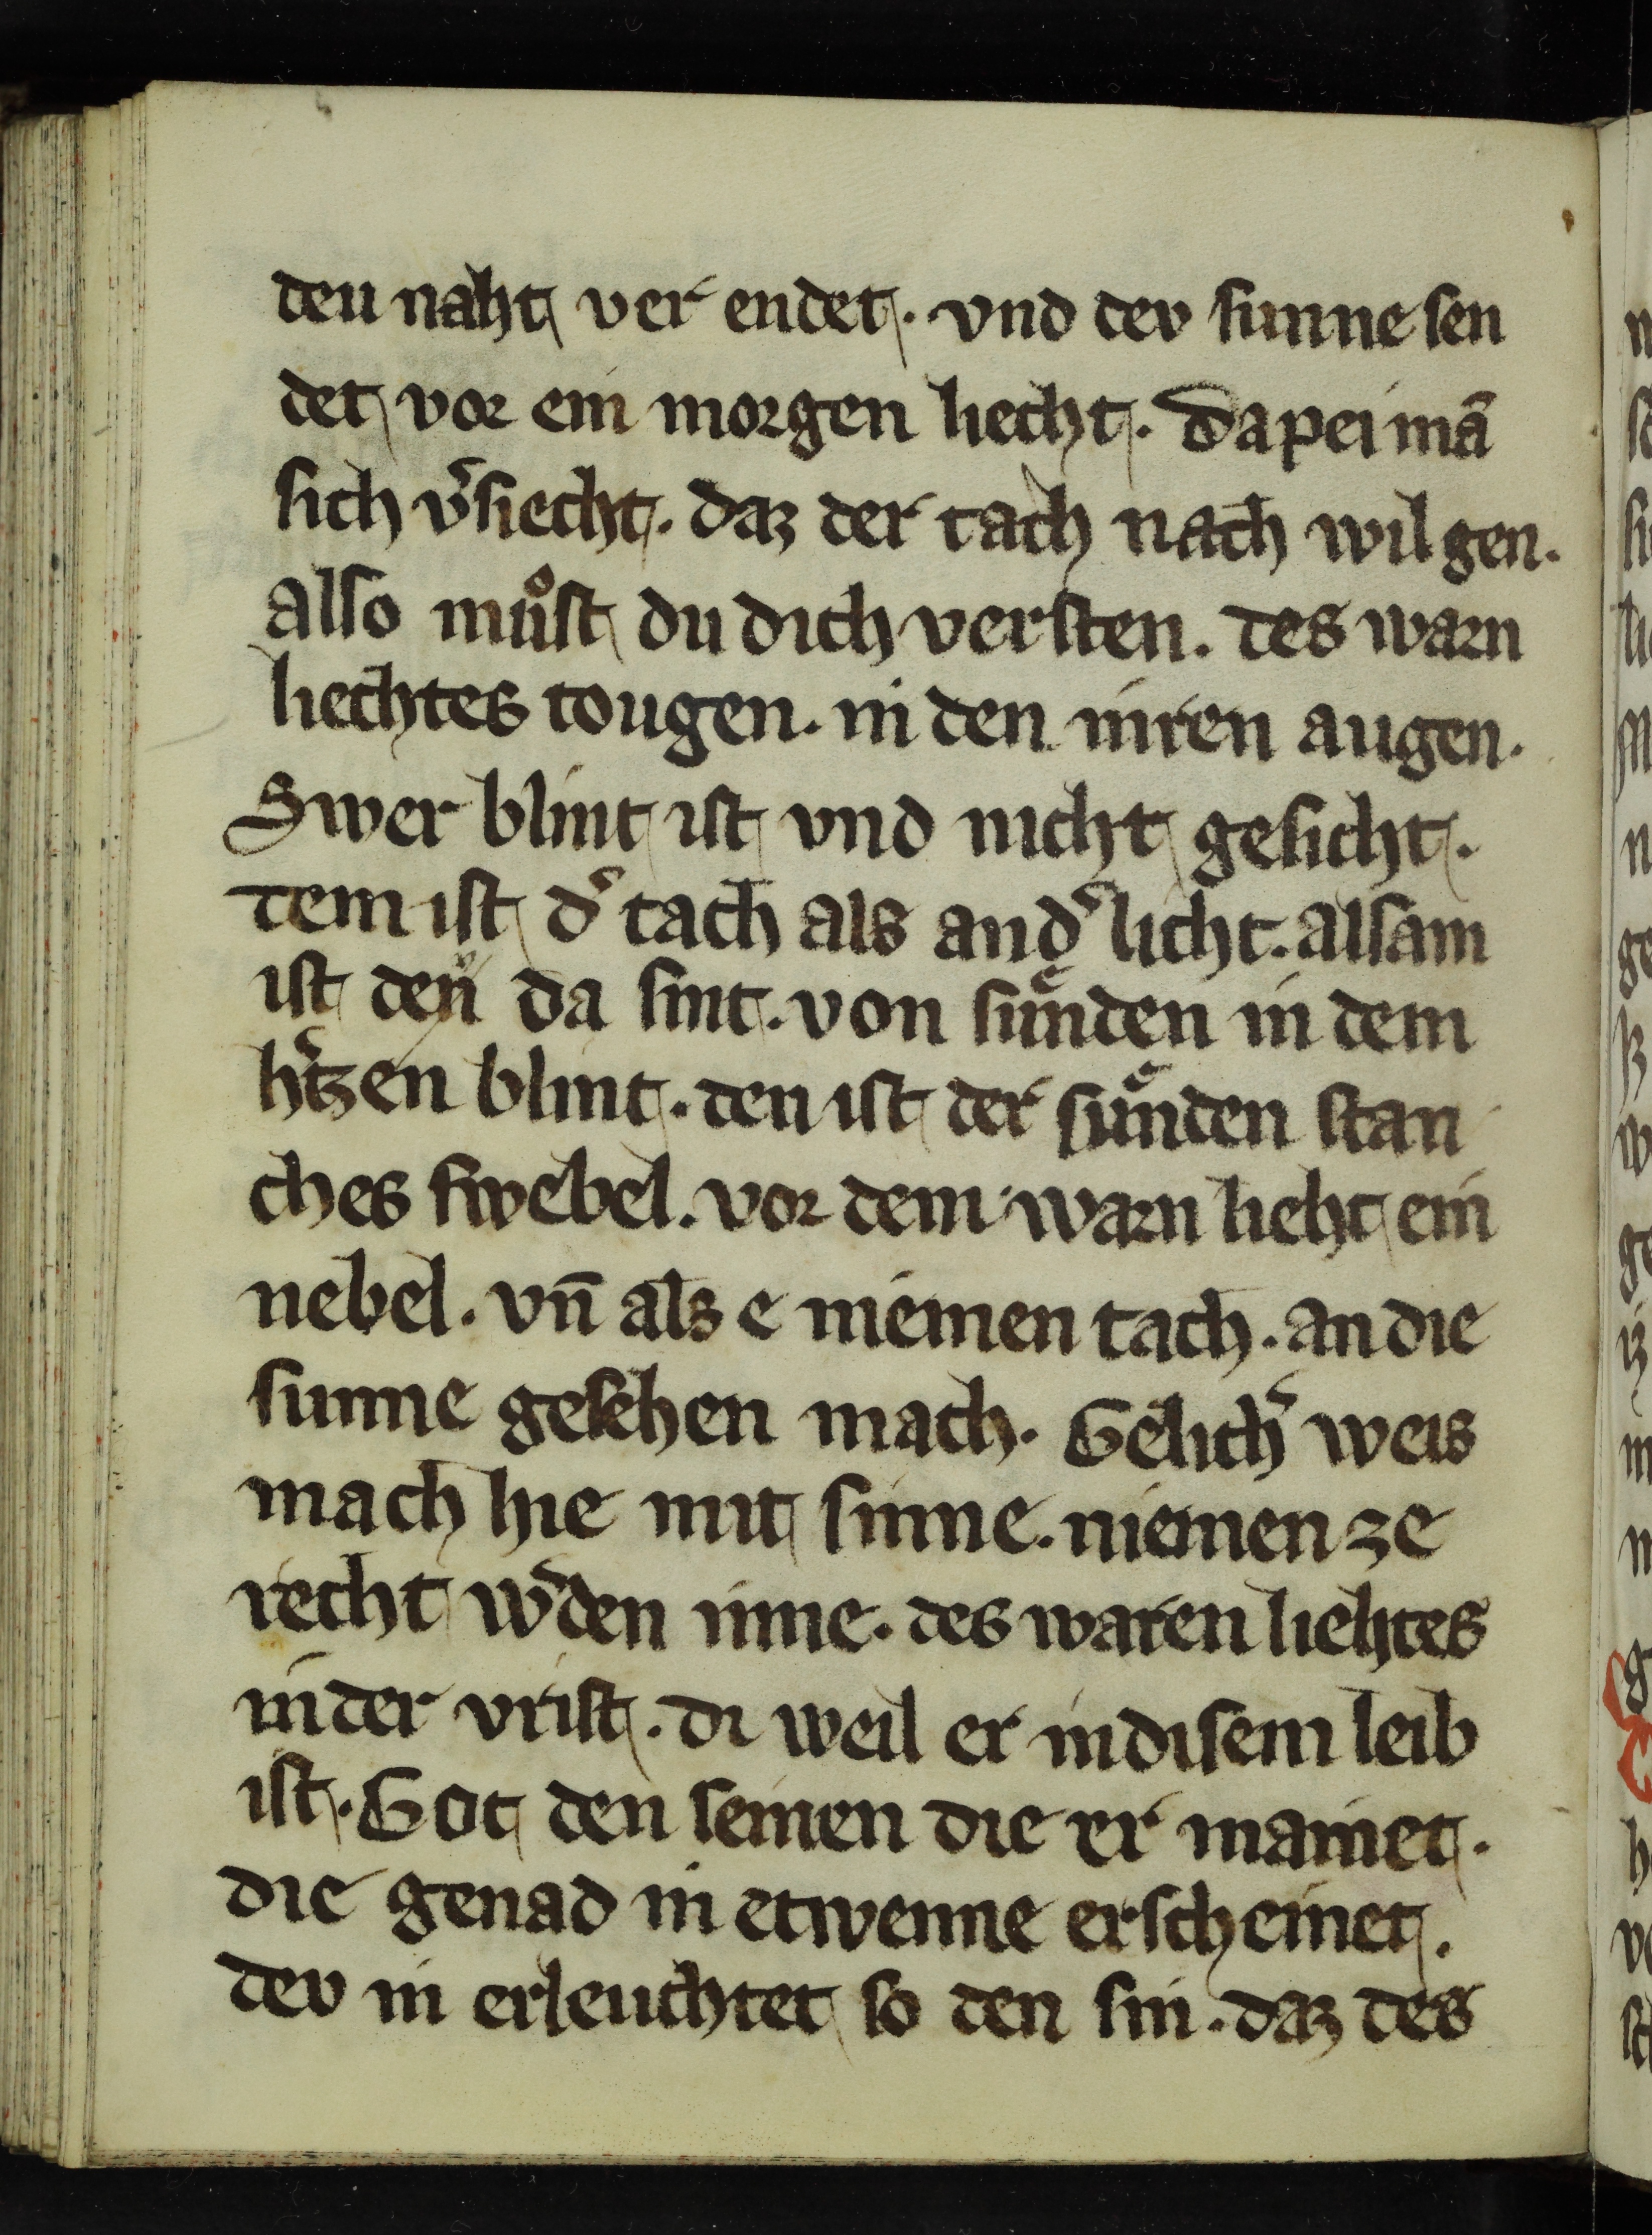 deu naht ver endet. vnd dev sunne sen
det vor ein morgen liecht. Dapei mā
sich v̾siecht. daz der tach nach wil gen.
also muͦst du dich versten. des warn
liechtes tougen. in den inren augen.
Swer blint ist vnd nicht gesicht.
dem ist d̾ tach als and̾ licht. alsam
ist den da sint. von suͤnden in dem
h̾tzen blint. den ist der suͤnden stan
ches swebel. vor dem warn lieht ein
nebel. vn̄ als e niemen tach. an die
sunne gesehen mach. Gelich̾ weis
mach hie mit sinne. niemen ze
recht w̾den inne. des waren liehtes
in der vrist. di weil er in disem leib
ist. Got den seinen die er mainet.
die genad in etwenne erscheinet.
dev in erleuchtet so den sin. daz des